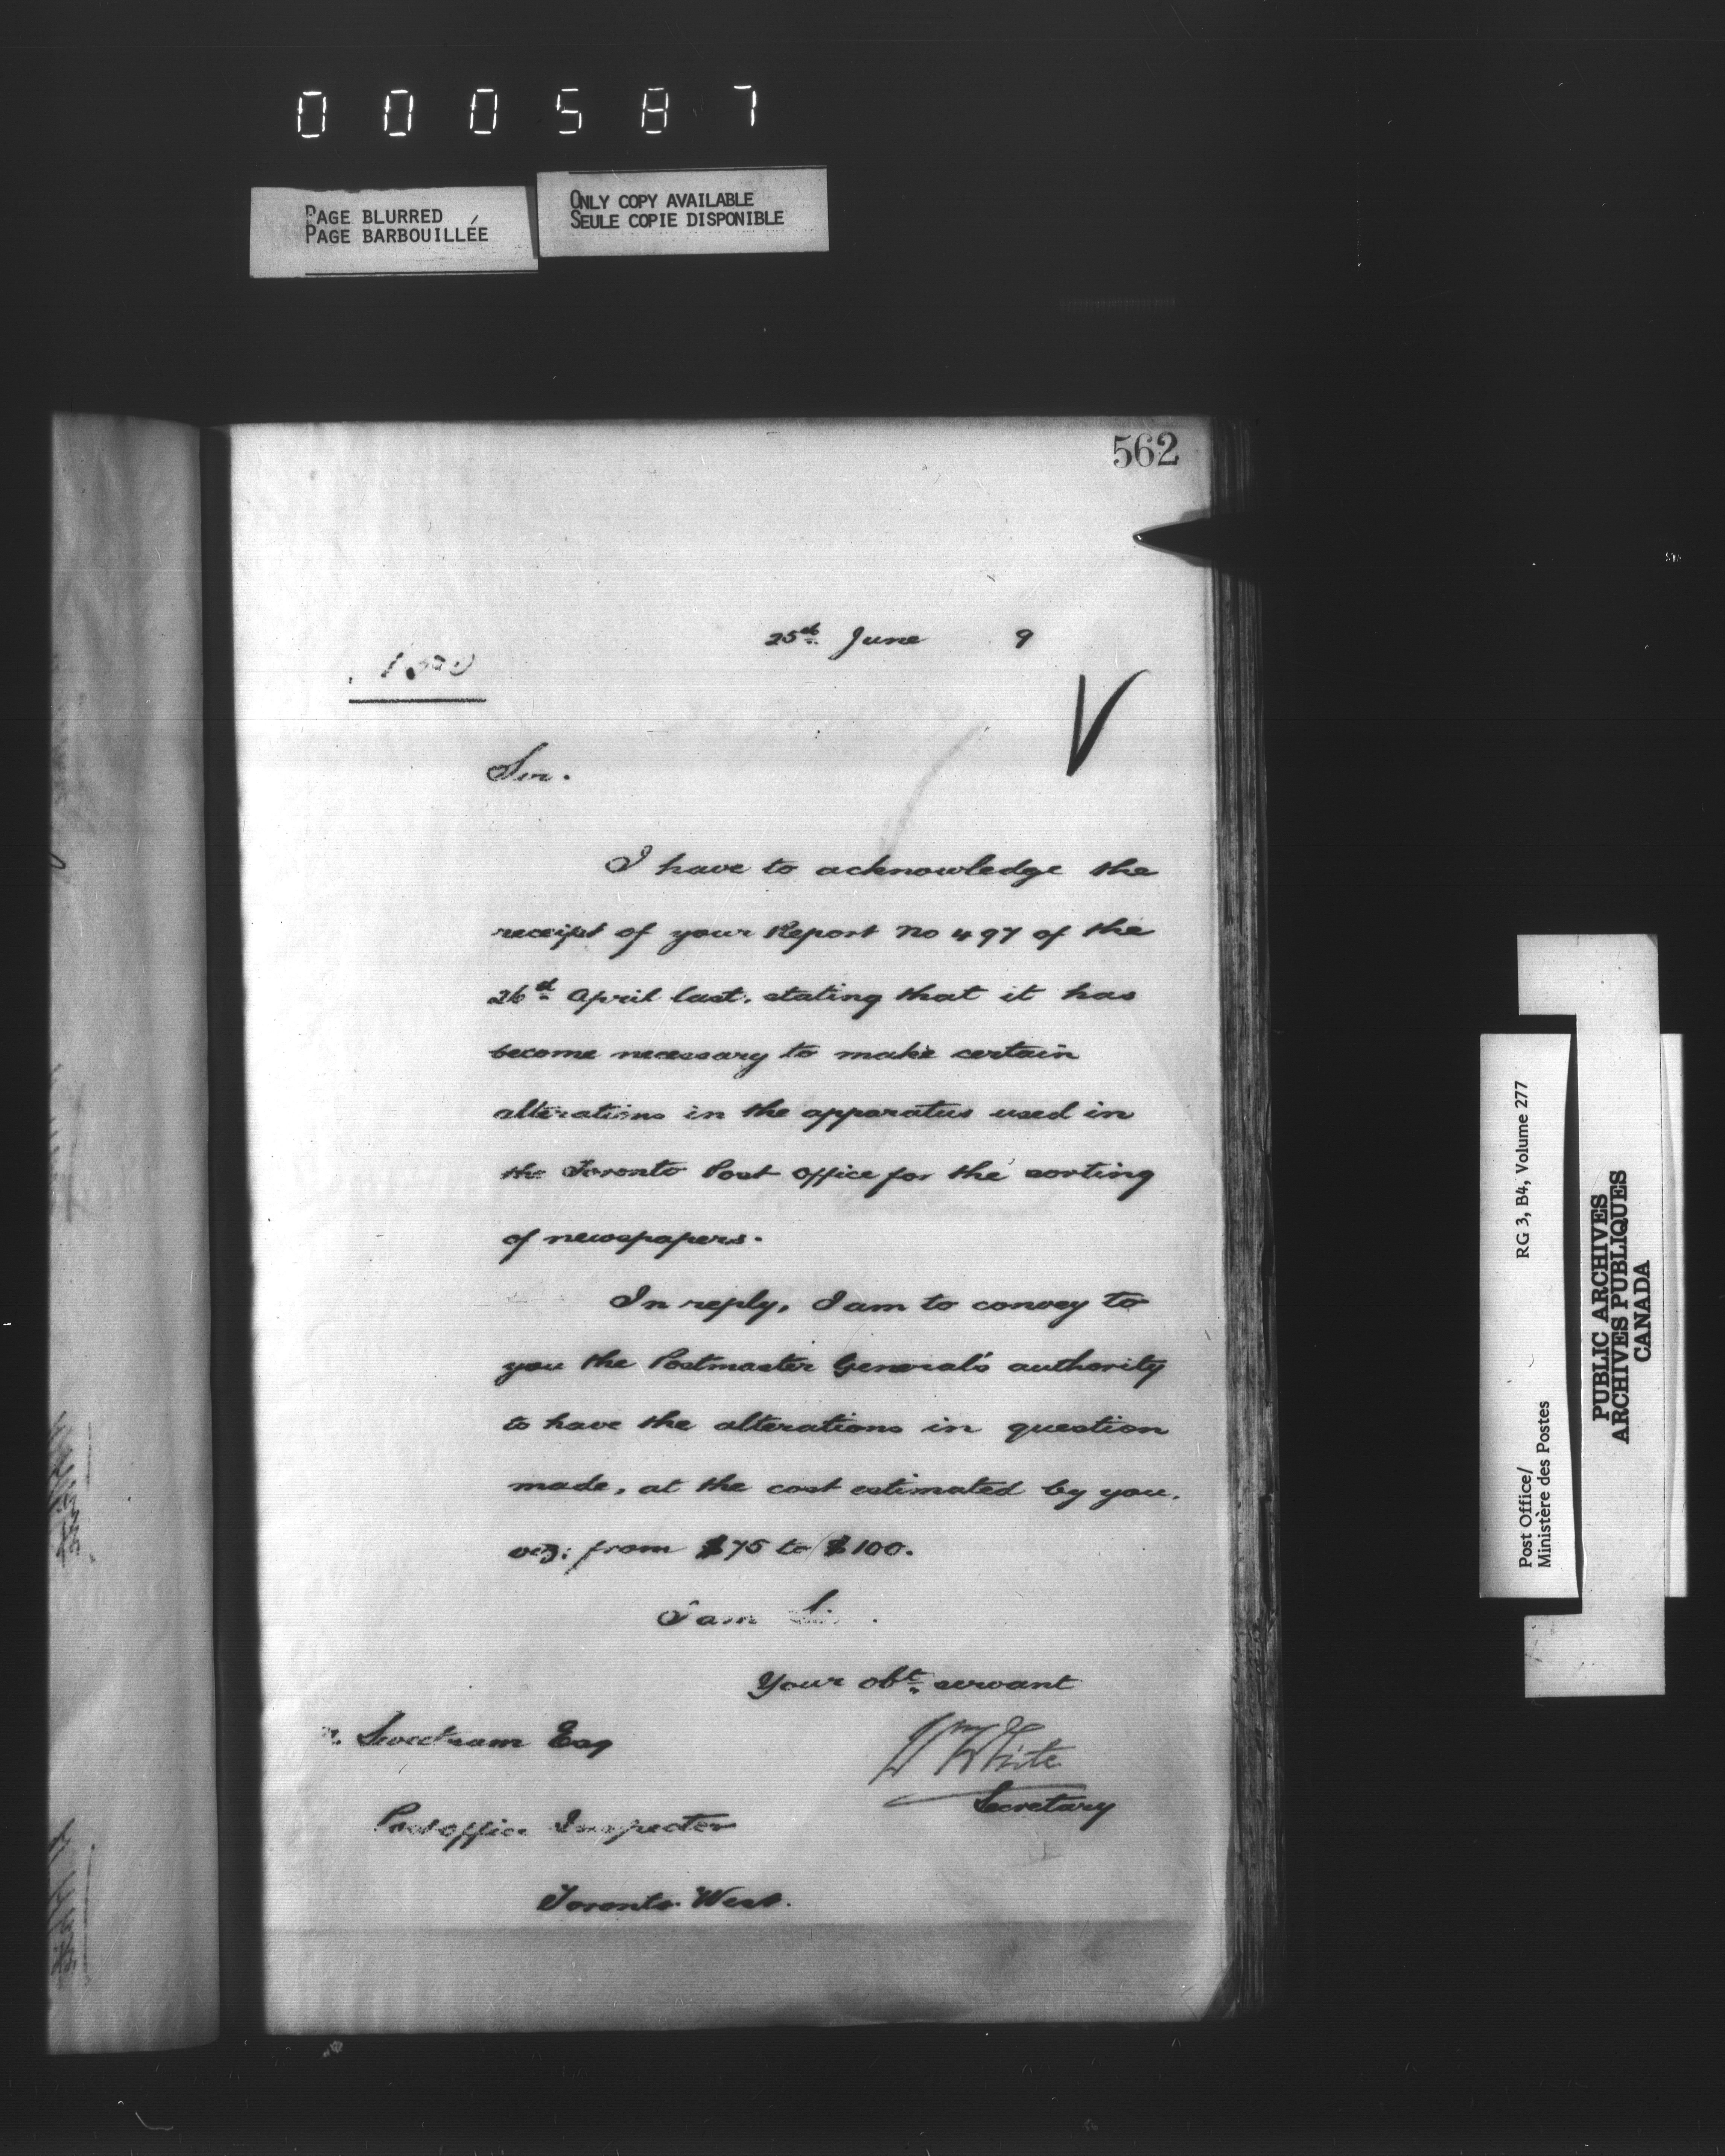 000587
PAGE BLURRED
PAGE BARBOUILLÉE
ONLY COPY AVAILABLE
SEULE COPIE DISPONIBLE
562
25th June 9
Sir.
I have to acknowledge the
receipt of your Report No 497 of the
26th April last, stating that it has
become necessary to make certain
alterations in the apparatus used in
the Toronto Post Office for the sorting
of newspapers.
In reply, I am to convey to
you the Postmaster General's authority
to have the alterations in question
made, at the cost estimated by you,
viz: from $75 to $100.
I am
Your obt. servant
Wm White
Secretary
Sweetnam Esq
Post office Inspector
Toronto West.
Post Office/
Ministère des Postes
RG 3, B4, Volume 277
PUBLIC ARCHIVES
ARCHIVES PUBLIQUES
CANADA